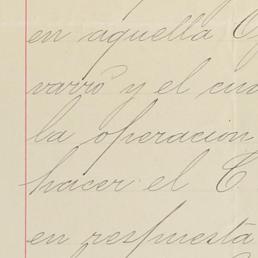 en aquella
varro y el
la operación
hacer el C
en respuesta